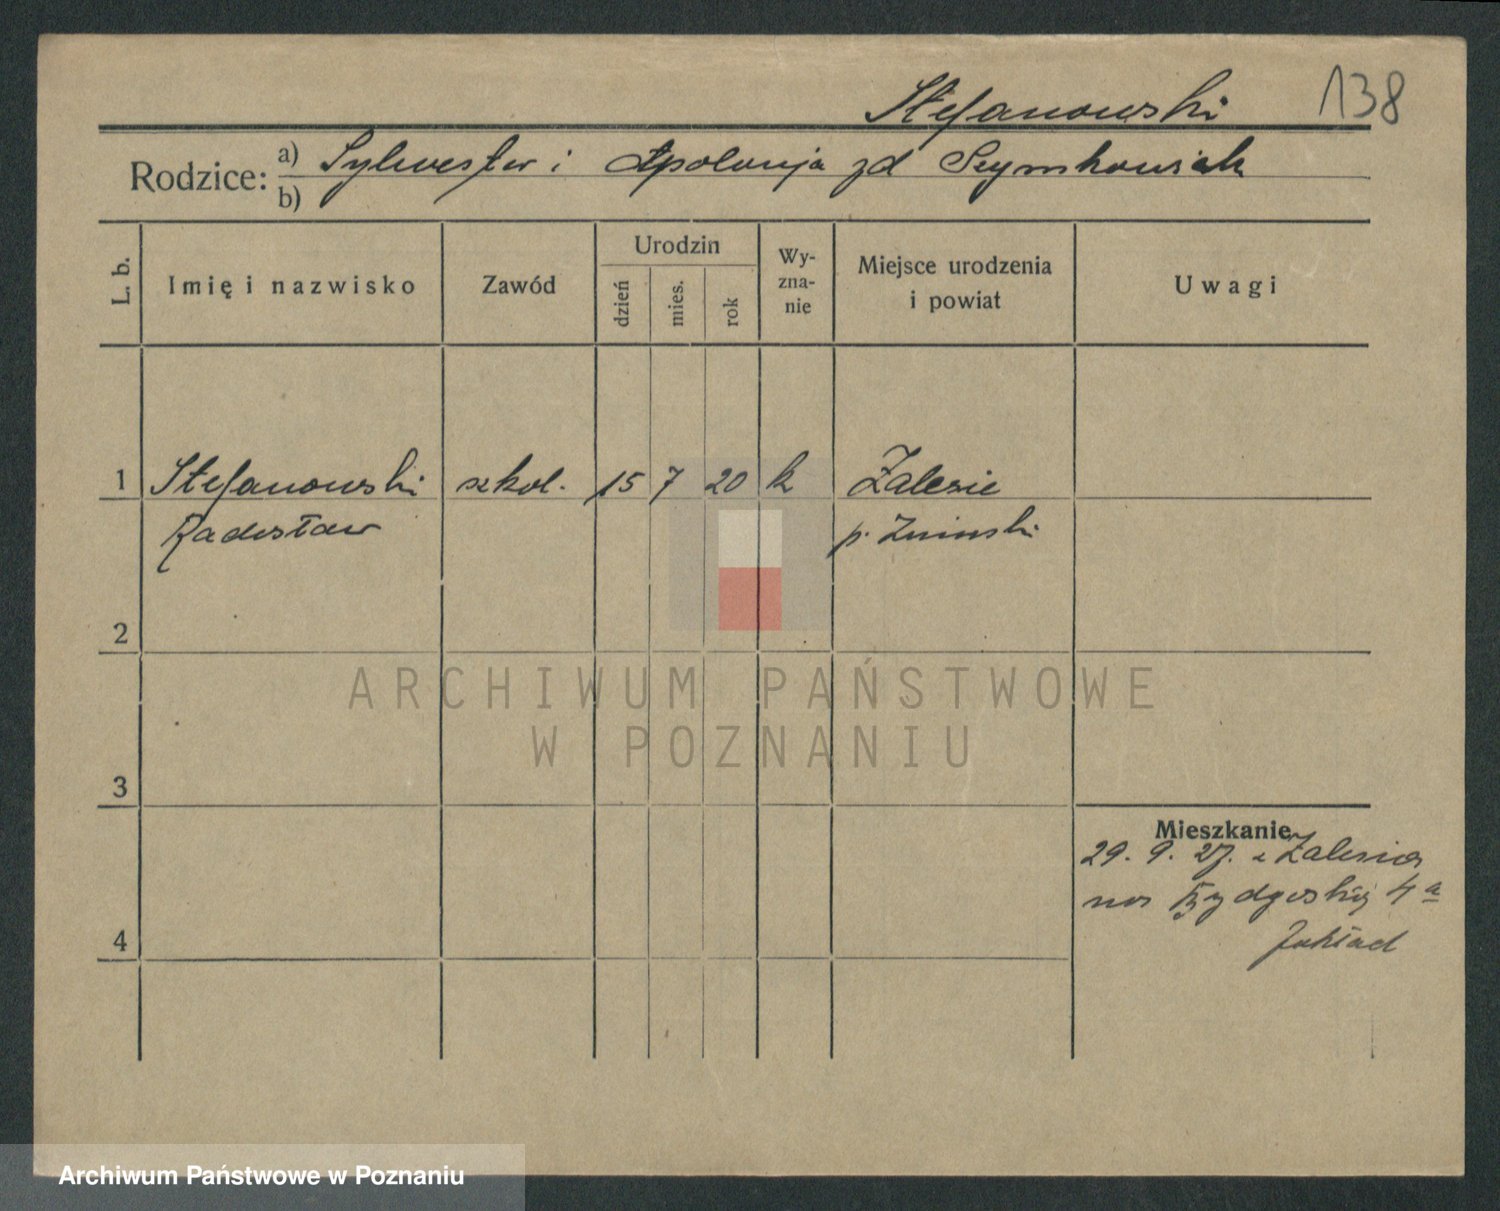 Stefanowski 138
Rodzice: a) Sylwester i Apolonja zd Szymkowiak
b)
L. b. Imię i nazwisko Zawód Urodzin dzień mies. rok Wy-zna-nie Miejsce urodzenia i powiat Uwagi
1 Stefanowski szkol. 15 7 20 k Zalesie
Radosław p. Żniński
2
ARCHIWUM PAŃSTWOWE
W POZNANIU
3
Mieszkanie
29. 9. 27. z Zalesia
na Bydgoskiej 4 a
4
Zakład
Archiwum Państwowe w Poznaniu